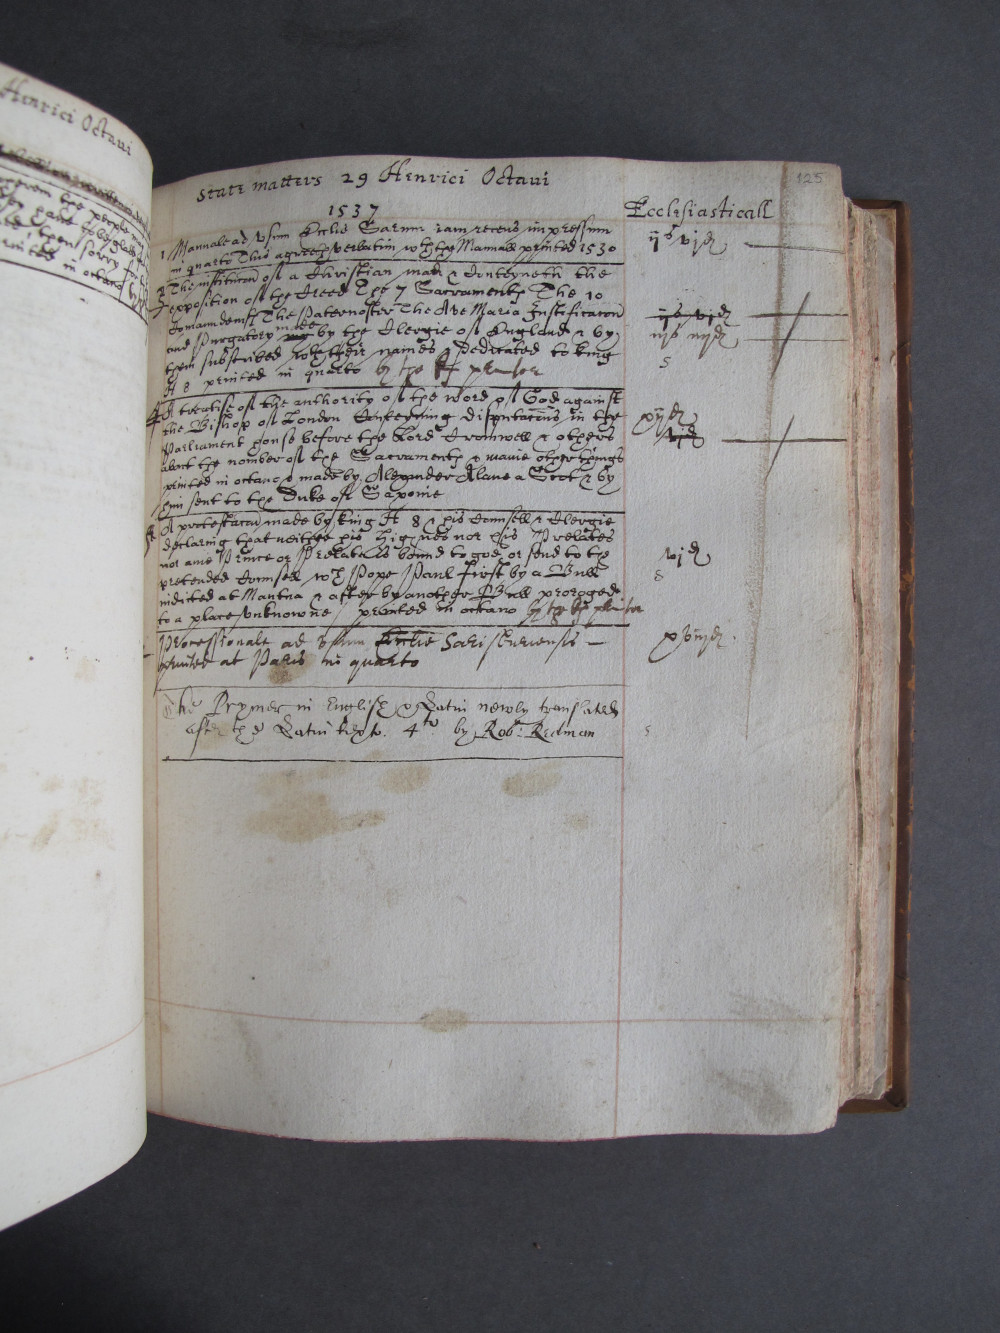 Henrici Octaui
125
State matters 29 Henrici Octaui
1537
Ecclesiasticall
1 Manuale ad vsum Eccles Sarum iam recens impressum
in quarto This agreeth verbatim wth the Manuall printed 1530
ijs vjd
2 The institucon of a Christian man & conteyneth the
exposition of the Creed The 7 Sacraments The 10
Comaundemts The Paternoster The Ave Maria Justificacon
and Purgatory made by the Clergie of England & by
them subscribed wth their names Dedicated to king
H 8 printed in quarto by the ks printer
ijs vjd
iijs iiijd
S
4 A treatise of the authority of the word of God against
the Bishop of London Conserning disputacions in the
Parliament house before the Lord Cromwell & others
abovt the nomber of the Sacraments & manie other things
printed in octavo & made by Alexander Alane a Scot & by
him sent to the Duke of Saxonie
xijd
vjd
A protestacon made by king H 8 & his Counsell & Clergie
declaring that neither his Highnes nor his Prelates
nor anie Prince or Prelate is bound to goe or send to the
pretended Counsell wch Pope Paul first by a Bull
indicted at Mantua & after by another Bull proroged
to a place vnknowne / printed in octavo by the ks printer
vjd
S
Processionale ad vsum Ecclie Sarisburiensis —
printed at Paris in quarto
xviijd
The Prymer in English & Latin newly translated
after the Latin text. 4to by Rob: Redman
S